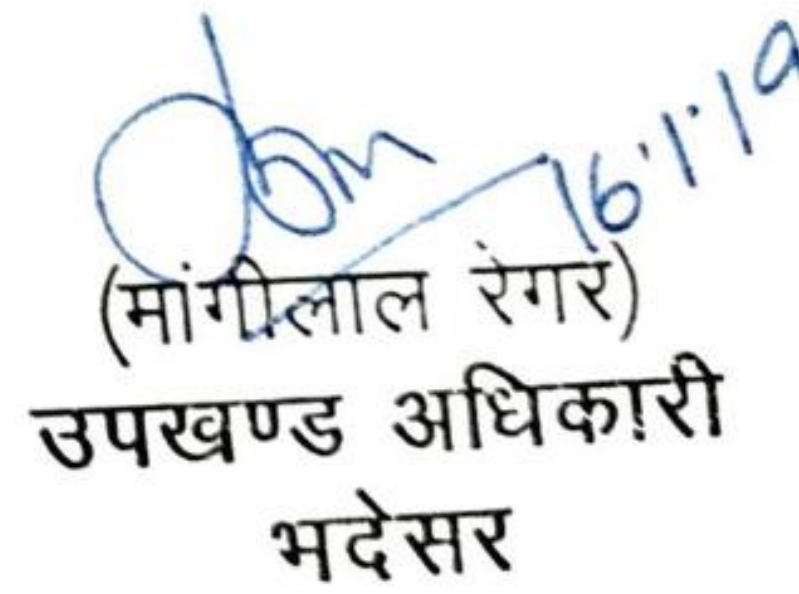 16.1.19
(मांगीलाल रेगर)
उपखण्ड अधिकारी
भदेसर